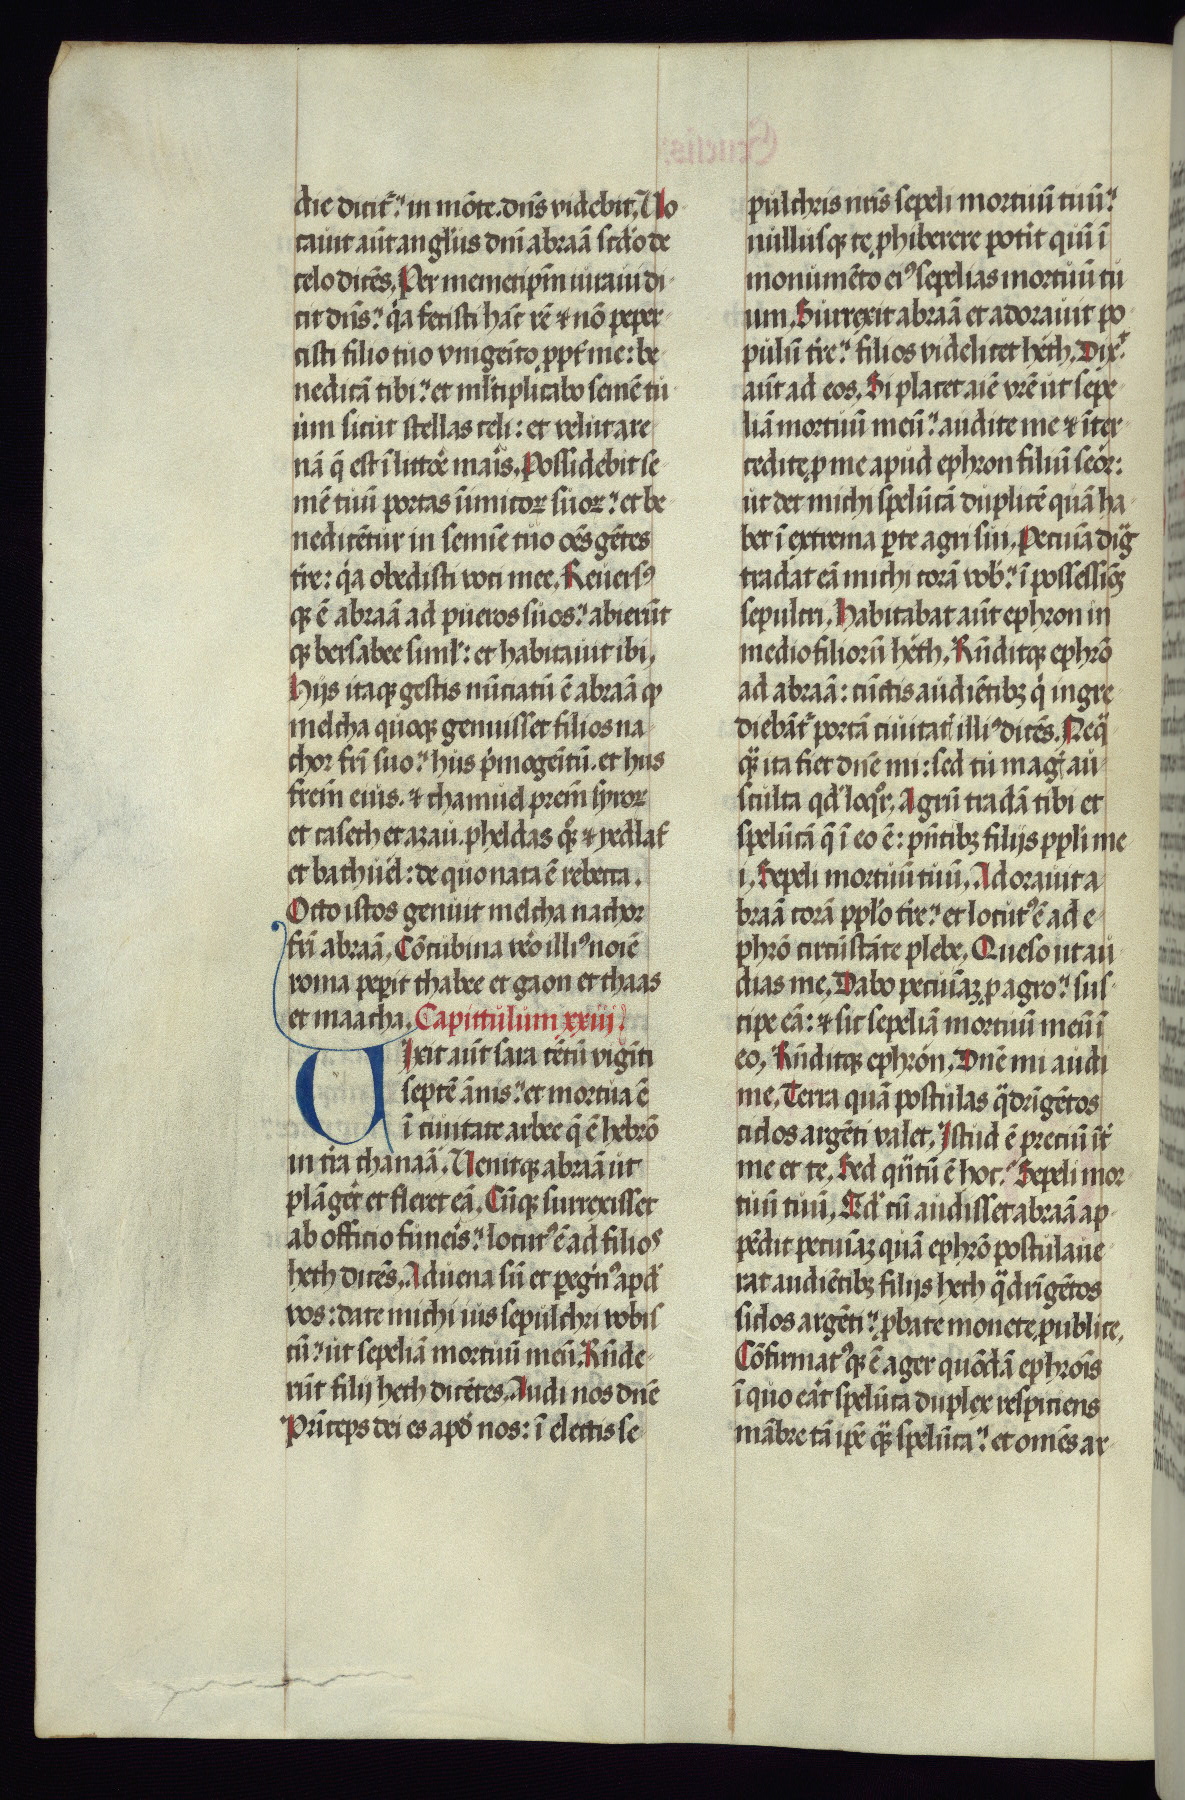 die dicit᷑ in mōte dn̄s videbit. Uo
cauit aūt anglus dn̄i abraā scd̄o de
celo dicēs. Per memetip̄m iuraui di
cit dn̄s qꝛa fecisti hāc rē ⁊ nō peper
cisti filio tuo vnigeīto ꝓpt̄ me: be
nedicā tibi et ml̄tiplicabo semē tu
um sicut stellas celi: et velut are
nā q̄ est ī littoꝛe maꝛis. Possidebit se
mē tuū portas īimicoꝝ suoꝝ et be
nedicētur in semīe tuo oēs gētes
t̄re: qꝛa obedisti voci mee. Reuersꝰ
qꝫ ē abraā ad pueros suos abierūt
qꝫ bersabee siml̄: et habitauit ibi.
Hijs itaqꝫ gestis nūciatū ē abraā ꝙ
melcha quoqꝫ genuisset filios na
chor fr̄i suo hus pꝛimogeītū. et hus
fr̄em eius. ⁊ chamuel pr̄em syroꝝ
et caseth et azau. pheldas qꝫ ⁊ yedlaf
et bathuel: de quo nata ē rebecca.
Octo istos genuit melcha nachor
fr̄i abraā. Cōcubina v̄o illiꝰ noīe
roma peperit thabee et gaon et thaas
et maacha. Capittulum xxiij
Uixit aūt sara cētū viginti
septē ānis et mortua ē
ī ciuitate arbee q̄ ē hebrō
in t̄ra chanaā. Uenitqꝫ abraā ut
plāgeꝛet et fleret eā. Cūqꝫ surrexisset
ab officio funeꝛis locutꝰ ē ad filios
heth dicēs. Aduena sū et pegꝛinꝰ apd̄
vos: date michi ius sepulchri vobis
cū ut sepeliā mortuū meū. Rn̄de
rūt filij heth dicētes. Audi nos dn̄e
Prīceps dei es apd̄ nos: ī electis se
pulchris nr̄is sepeli mortuū tuū
nullusqꝫ te ꝓhiberere poterit quī ī
monumēto eiꝰ sepelias mortuū tu
um. Surrexit abraā et adorauit po
pulū t̄re filios videlicet heth. Dix̄
aūt ad eos. Si placet aīe vr̄e ut sepe
liā mortuū meū audite me ⁊ īter
cedite ꝓ me apud ephron filiū seor:
ut det michi spelūcā duplicē quā ha
bet ī extrema ꝑte agri sui. Pecuīa digᷓ
tradat eā michi corā vob̄ ī possessiōꝫ
sepulcri. Habitabat aūt ephron in
medio filiorū heth. Rn̄ditqꝫ ephrō
ad abraā: cūctis audiētibꝫ qꝛ ingre
diebāt᷑ portā ciuitat᷑ illiꝰ dicēs. Neqᷓ
qᷓꝫ ita fiet dn̄e mi: sed tu magꝭ au
sculta qd̄ loqꝛ. Agrū tradā tibi et
spelūcā q̄ ī eo ē: pn̄tibꝫ filijs ppl̄i me
i. Sepeli mortuū tuū. Adorauit a
braā corā ppl̄o t̄re et locutꝰ ē ad e
phrō circūstāte plebe. Queso ut au
dias me. Dabo pecuīaꝫ ꝓ agro sus
cipe eā: ⁊ sic sepeliā mortuū meū ī
eo. Rn̄ditqꝫ ephron. Dn̄e mi audi
me. Terra quā postulas qᷓdrīgētos
ciclos argēti valet. Istud ē preciū īt̄
me et te. Sed qᷓtū ē hoc Sepeli mor
tuū tuū. Qd̄ cū audisset abraā ap
pēdit pecuīaꝫ quā ephrō postulaue
rat audiētibꝫ filijs heth qᷓdrīgētos
siclos argēti ꝓbate monete publice.
Cōfirmatꝰqꝫ ē ager quōdā ephroīs
ī quo eꝛat spelūca duplex respiciens
mābre tā ip̄e qᷓꝫ spelūca et omēs ar